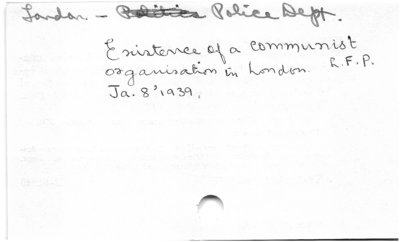 London - Politics Police Dept.
Existence of a communist
organisation in London. L.F.P.
Ja. 8'1939.